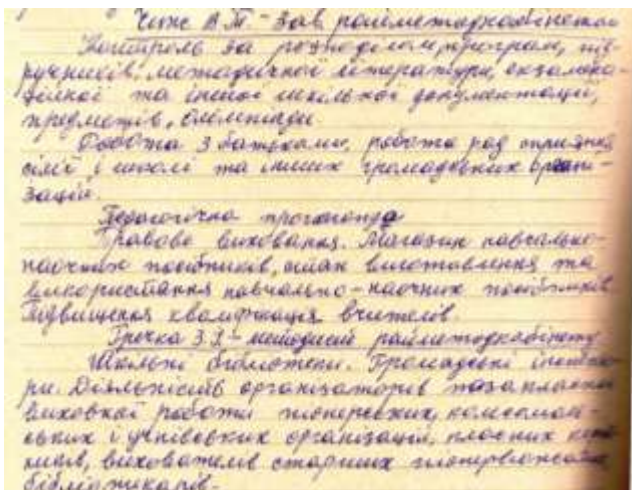 Чиж В.М. – зав. райметодкабінетом
Контроль за розподілом, програм, під-
ручників, методичної літератури, екзамена-
ційної та іншої шкільної документації,
предметів, олімпіади.
Робота з батьками, робота рад сприяння
сім'ї і школі та інших громадських органі-
зацій.
Педагогічна пропаганда
Правове виховання. Магазин навчально-
наочних посібників, стан виготовлення та
використання навчально-наочних посібників
Підвищення кваліфікація вчителів.
Гречка З.І. – методист райметодкабінету
Шкільні бібліотеки. Громадські інспекто-
ри. Діяльність організаторів позакласної
виховної роботи піонерських, комсомоль-
ських і учнівських організацій, класних керів-
ників, вихователів старших піонервожатих
бібліотекарів.